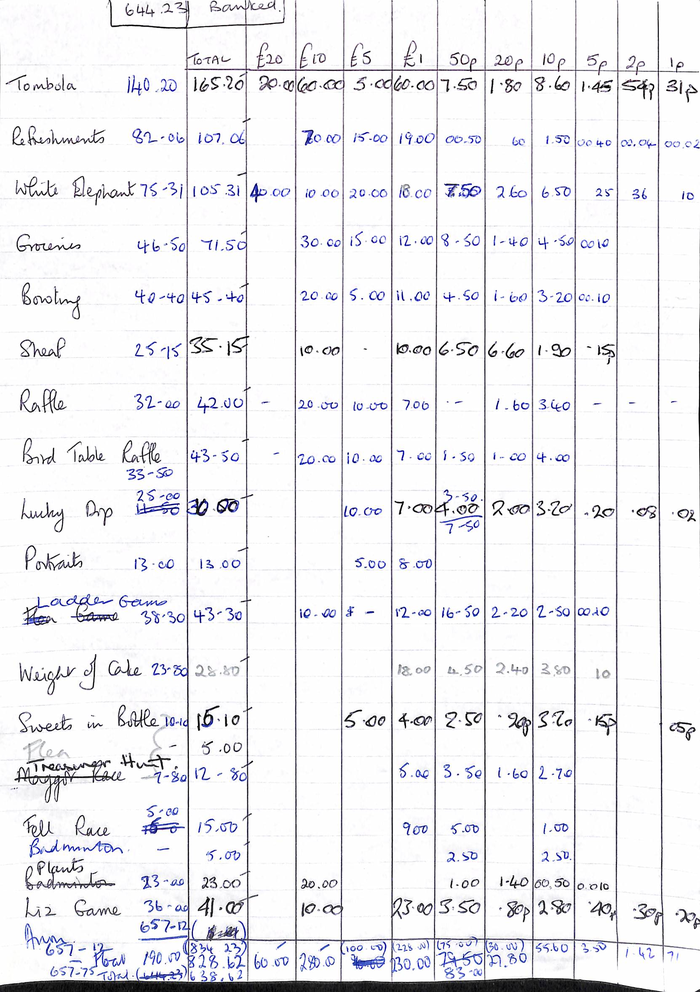 644.23 Banked.
TOTAL £20 £10 £5 £1 50p 20p 10p 5p 2p 1p
Tombola 140.20 165.20 20.00 60.00 5.00 60.00 7.50 1.80 8.60 1.45 54p 31p
Refreshments 82-06 107.06 70.00 15.00 19.00 00.50 60 1.50 00 40 00.04 00.02
White Elephant 75-31 105.31 40.00 10.00 20.00 18.00 7.50 2.60 6.50 25 36 10
Groceries 46-50 71.50 30.00 15.00 12.00 8-50 1-40 4-50 0010
Bowling 40-40 45-40 20.00 5.00 11.00 4.50 1-60 3-20 00.10
Sheaf 25-15 35.15 10.00 - 10.00 6.50 6.60 1.90 .15p
Raffle 32-00 42.00 - 20.00 10.00 700 -- 1.60 3.40 - - -
Bird Table Raffle 43-50 - 20.00 10.00 7.00 1.50 1-00 4.00
33-50
25-00 3-50.
Lucky Dip 30.00 10.00 7.00 4.00 2.00 3.20 .20 .08 .02
7-50
Portraits 13-00 13.00 5.00 8.00
Ladder Game
Flea Game 38-30 43-30 10.00 - 12-00 16-50 2-20 2-50 0010
Weight of Cake 23-80 28.80 18.00 4.50 2.40 3.80 10
Sweets in Bottle 10-10 15.10 5.00 4.00 2.50 .20p 3.20 .15p 05p
Flea - 5.00
Treasurer Hunt
Maggot Race 7-80 12-80 5.00 3.50 1.60 2.70
5-00
Fell Race 15.00 900 5.00 1.00
Badminton. - 5.00 2.50 2.50.
Plants
Badminton 23-00 23.00 20.00 1.00 1.40 00.50 0.010
Liz Game 36-00 41.00 10.00 23.00 3.50 .80p 2.80 .40p .30p .20p
Anon 657-12
657-12 (836 23) (100.00) (228.00) (75.00) (30.00)
Float 190.00 828.62 60.00 280.0 230.00 79.50 27.80 55.60 3.50 1.42 71
657-75 Total (644.23) 638.62 83-00